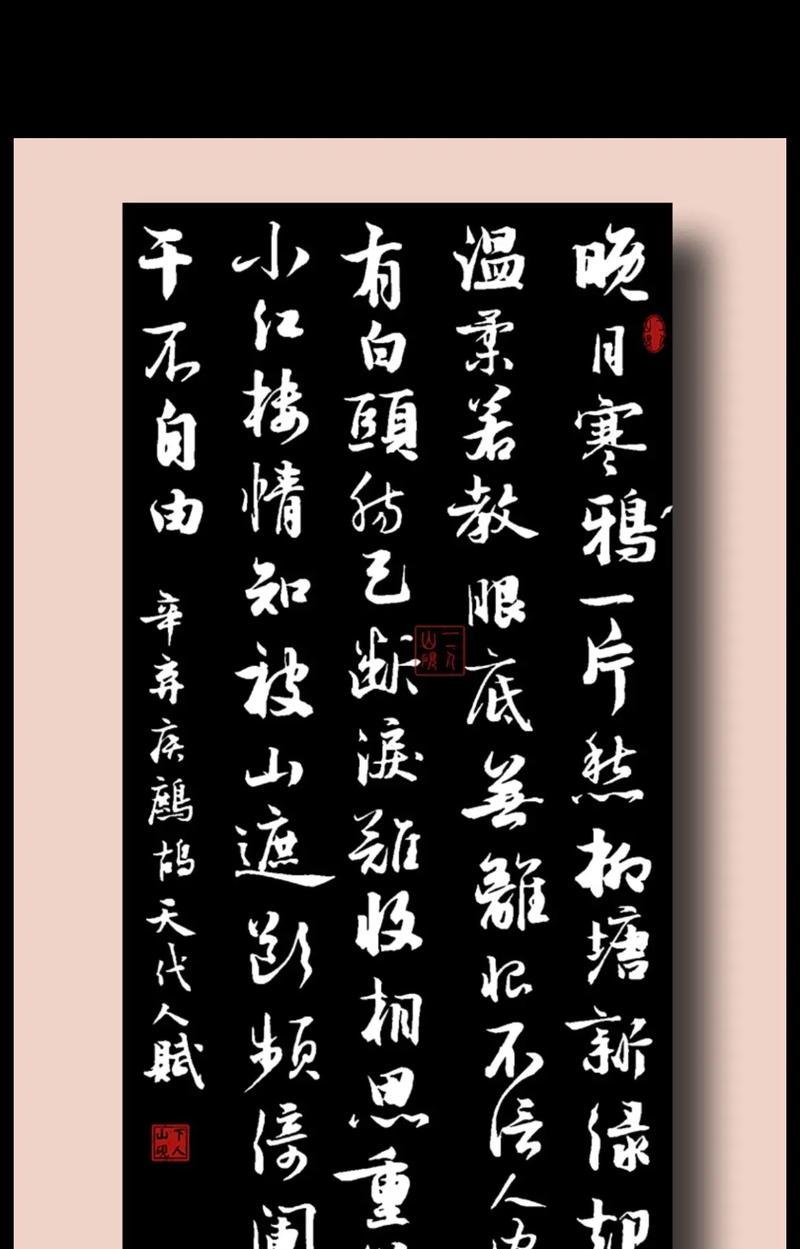 晚日寒鴉一片愁柳塘新緑却
溫柔若教眼底無離恨不信人
有白頭腸已斷淚難收相思重
小紅樓情知被山遮斷頻倚闌
干不自由
辛弃疾鷓鴣天代人賦